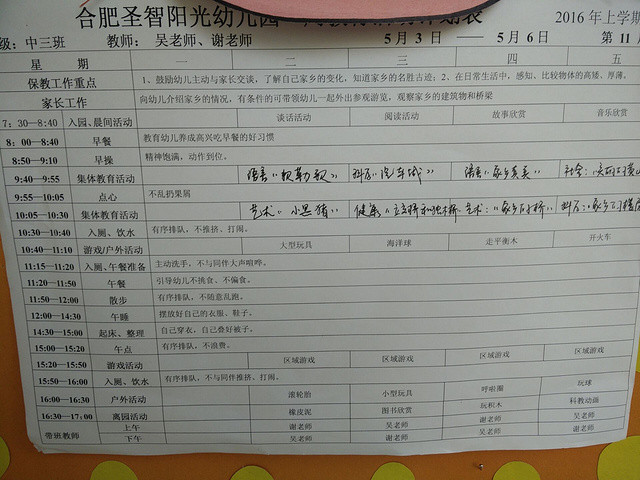 合肥圣智阳光幼儿园
2016 年上学期
级：中三班 教师： 吴老师、谢老师 5 月 3 日 —— 5 月 6 日 第 11
星 期 一 二 三 四 五
保教工作重点 1、鼓励幼儿主动与家长交谈，了解自己家乡的变化，知道家乡的名胜古迹；2、在日常生活中，感知、比较物体的高矮、厚薄。
家长工作 向幼儿介绍家乡的情况，有条件的可带领幼儿一起外出参观游览，观察家乡的建筑物和桥梁
7：30—8:40 入园、晨间活动 谈话活动 阅读活动 故事欣赏 音乐欣赏
8：00—8:40 早餐 教育幼儿养成高兴吃早餐的好习惯
8:50—9:10 早操 精神饱满，动作到位。
9:40—9:55 集体教育活动 语言《敕勒歌》 科后《汽车城》 语言《家乡真美》 社会：
9:55—10:05 点心 不乱扔果屑
10:05—10:30 集体教育活动 艺术《小黑猪》 健康《立交桥和独木桥 艺术：《家乡的桥》
10:30—10:40 入厕、饮水 有序排队，不推挤、打闹。
10:40—11:10 游戏/户外活动 大型玩具 海洋球 走平衡木 开火车
11:15—11:20 入厕、午餐准备 主动洗手，不与同伴大声喧哗。
11:20—11:50 午餐 引导幼儿不挑食、不偏食。
11:50—12:00 散步 有序排队，不随意乱跑。
12:00—14:30 午睡 摆放好自己的衣服、鞋子。
14:30—15:00 起床、整理 自己穿衣，自己叠好被子。
15:00—15:20 午点 有序排队，不浪费。
15:20—15:50 游戏活动 区域游戏 区域游戏 区域游戏 区域游戏
15:50—16:00 入厕、饮水 有序排队，不与同伴推挤、打闹。
16:00—16:30 户外活动 滚轮胎 小型玩具 呼啦圈 玩球
16:30—17:00 离园活动 橡皮泥 图书欣赏 玩积木 科教动画
带班教师 上午 谢老师 吴老师 谢老师 吴老师
下午 吴老师 谢老师 吴老师 谢老师